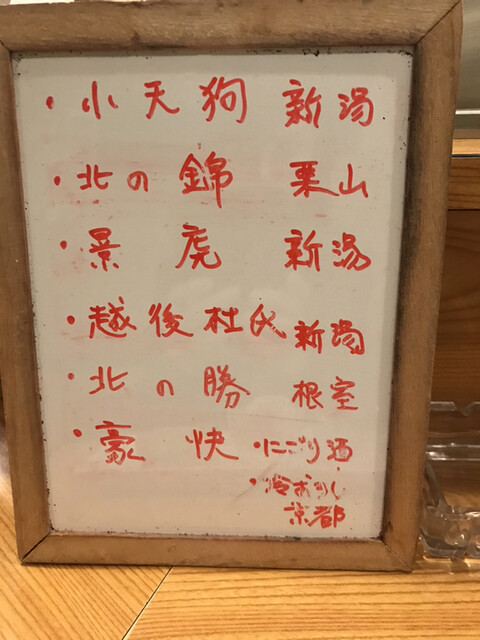 ・小天狗 新潟
・北の錦 栗山
・景虎 新潟
・越後杜氏 新潟
・北の勝 根室
・豪快 ・にごり酒
・冷おろし
京都